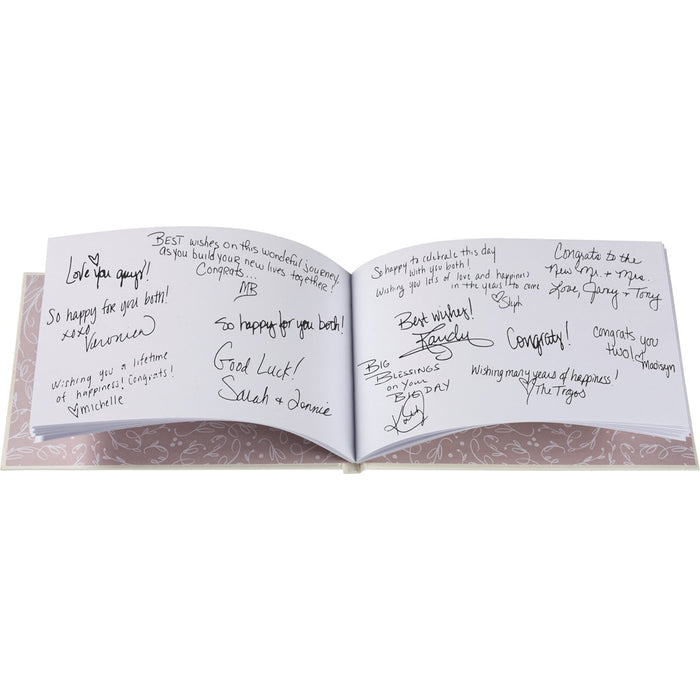 Love you guys!!
BEST wishes on this wondeful journey,
as you build your new lives together!
Congrats...
MB
So happy for you both!
xoxo,
Veronica
So happy for you both!
Wishing you a lifetime
of happiness! Congrats!
michelle
Good Luck!
Sarah &
So happy to celebrate this day
with you both!
Wishing you lots of love and happiness
in the years to come
Steph
Congrats to the
New Mr. + Mrs.
Love, Jerry + Tony
Best wishes!
Randy
Congrats!
congrats you
two!
Madisyn
BIG
BLESSINGS
on Your
BIG DAY
Wishing many years of happiness!
The Trojos